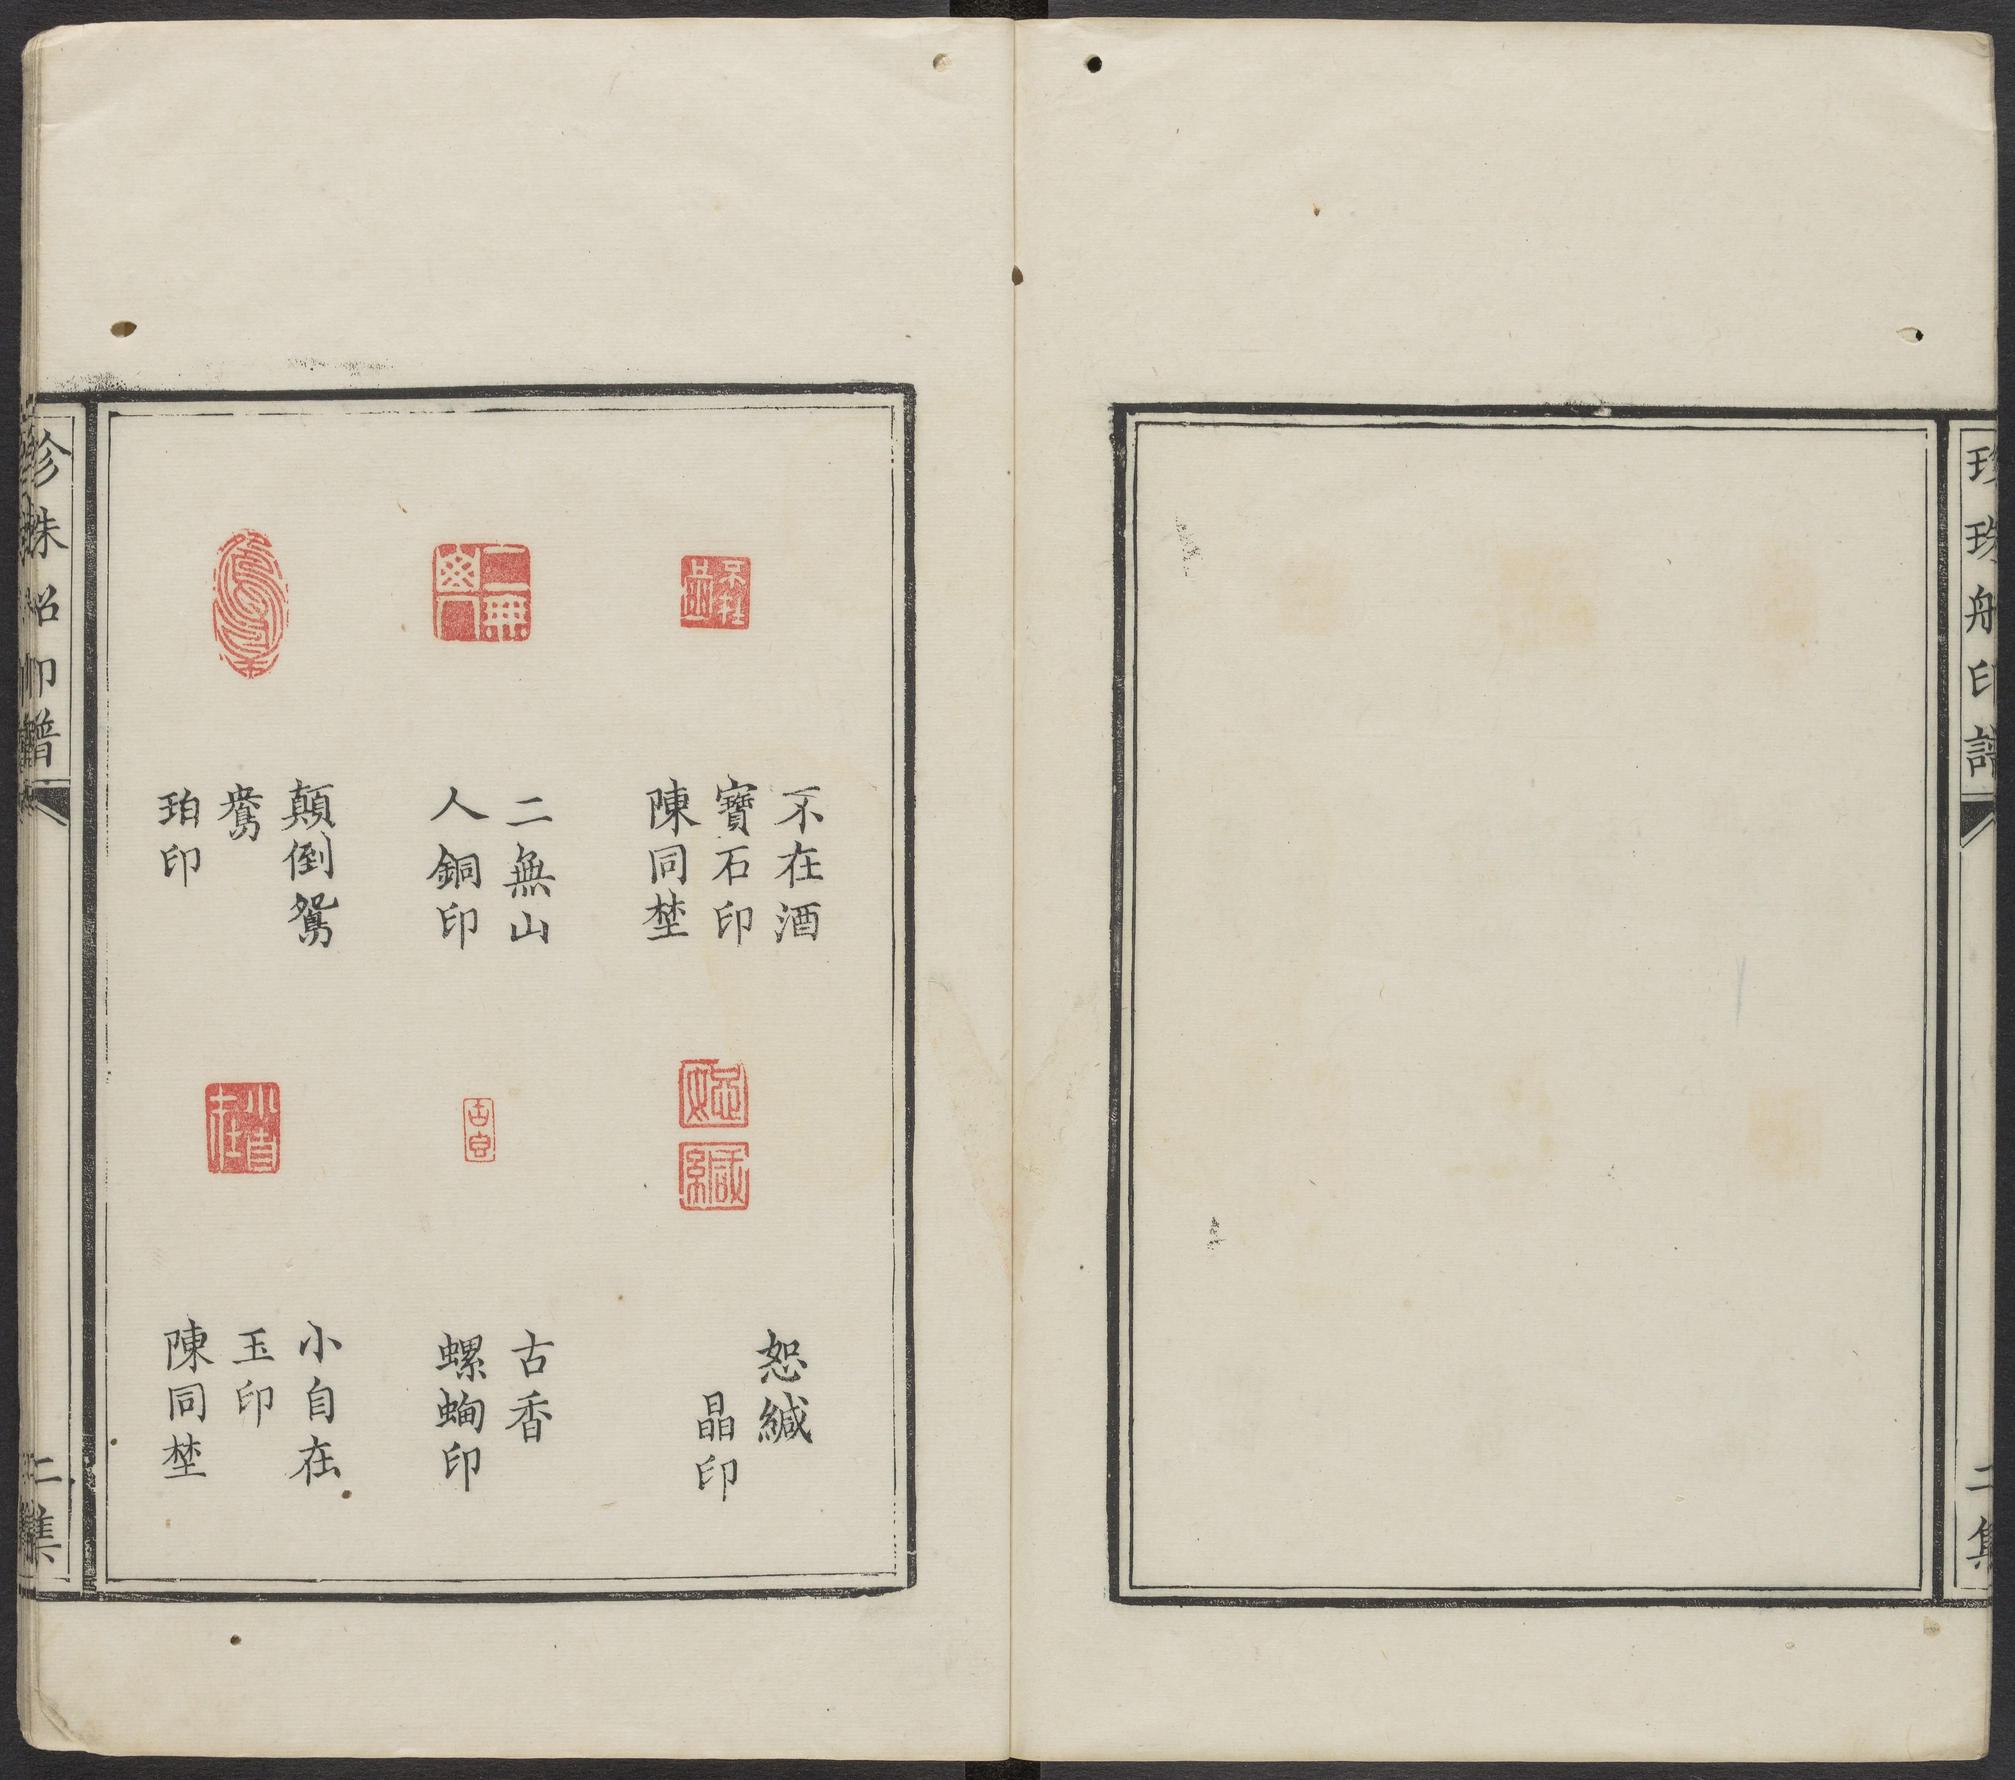 珍珠船印譜
二集
不在酒
寶石印
陳同埜
二無山
人銅印
顛倒鴛
鴦
珀印
恕緘
晶印
古香
螺蜔印
小自在
玉印
陳同埜
珍珠船印譜
二集